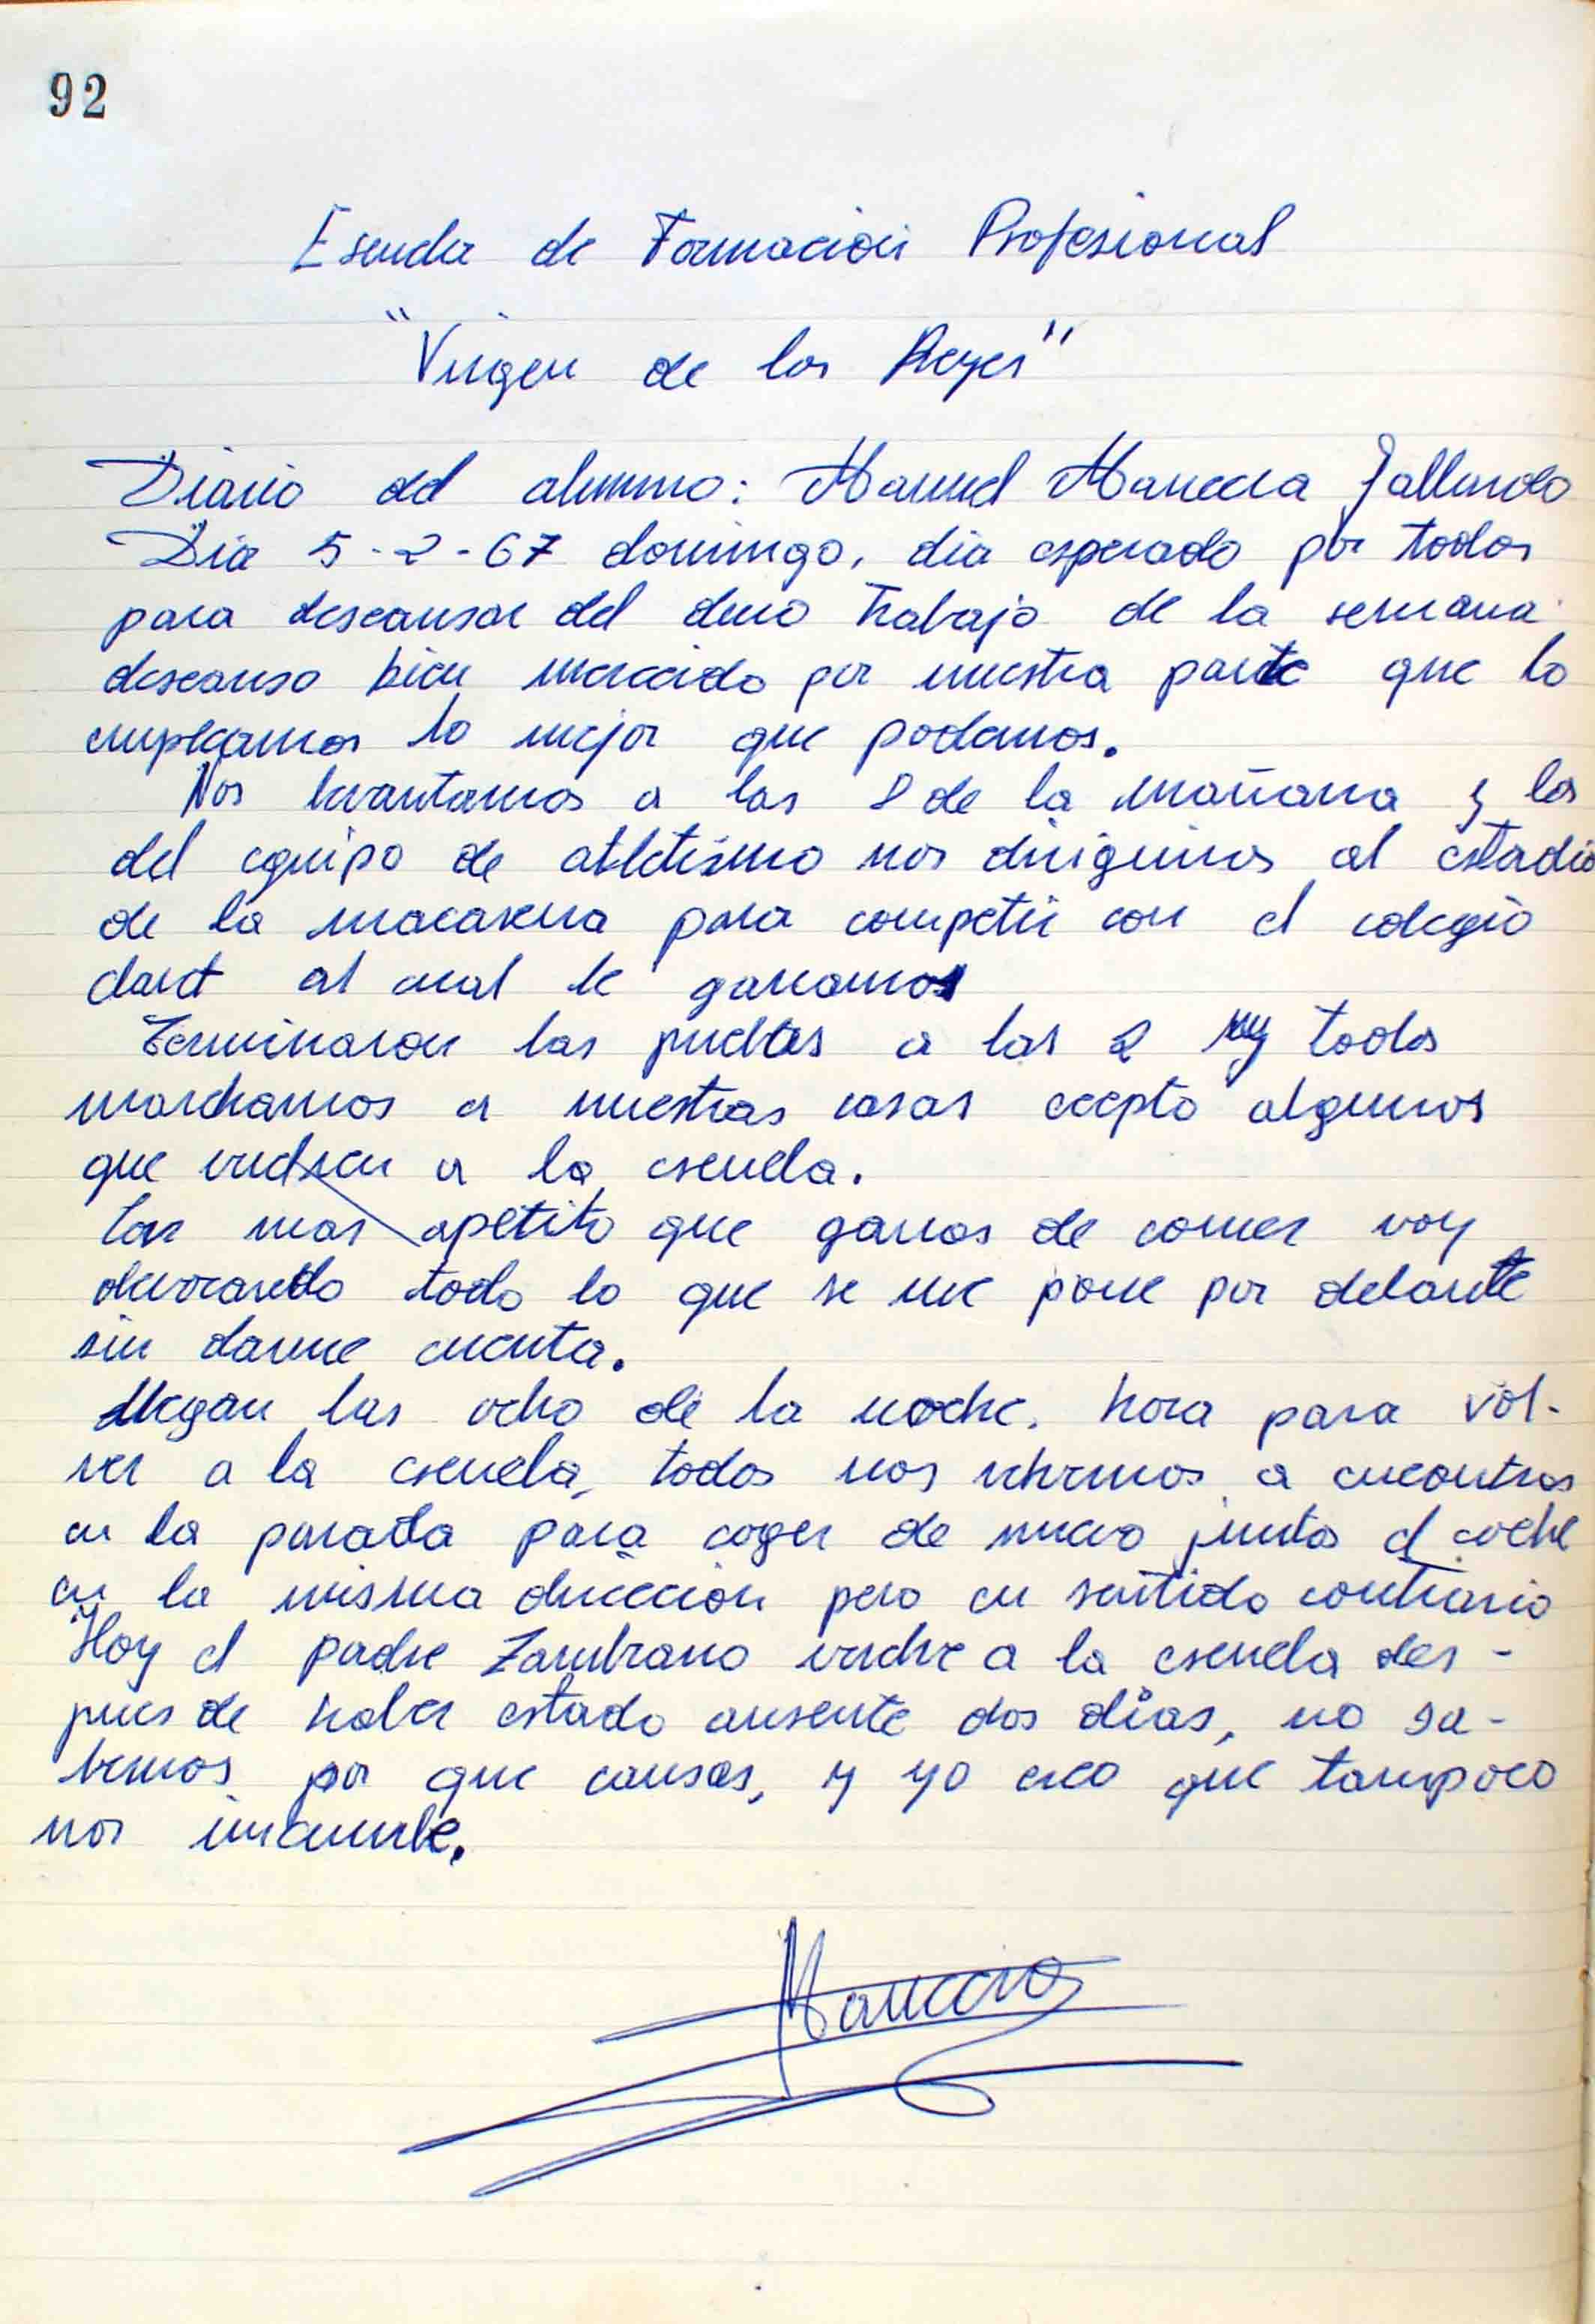 92
Escuela de Formación Profesional
"Virgen de los Reyes"
Diario del alumno: Manuel Mancera Gallardo
Dia 5-2-67 domingo, dia esperado por todos
para descansar del duro trabajo de la semana
descanso bien merecido por nuestra parte que lo
empleamos lo mejor que podemos.
Nos levantamos a las 8 de la mañana y los
del equipo de atletismo nos dirigimos al estadio
de la macarena para competir con el colegio
claret al cual le ganamos
Terminaron las pruebas a las 2 y todos
marchamos a nuestras casas ecepto algunos
que vuelven a la escuela.
Con mas apetito que ganas de comer voy
devorando todo lo que se me pone por delante
sin darme cuenta.
Llegan las ocho de la noche, hora para vol-
ver a la escuela, todos nos volvemos a encontrar
en la parada para coger de nuevo juntos el coche
en la misma dirección pero en sentido contrario
Hoy el padre Zambrano vuelve a la escuela des-
pues de haber estado ausente dos dias, no sa-
bemos por que causas, y yo creo que tampoco
nos incumbe.
Mancera